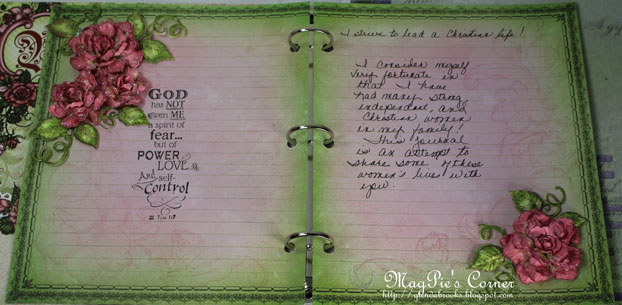 GOD
has NOT
given ME
a spirit of
fear...
but of
POWER
LOVE
And self-
Control
I strive to lead a Christian life!
I consider myself
very fortunate in
that I have
had many strong,
independant, and
Christian women
in my family!
This journal
is an attempt to
share some of these
women's lives with
you.
MagPie's Corner
http://glendabrooks.blogspot.com